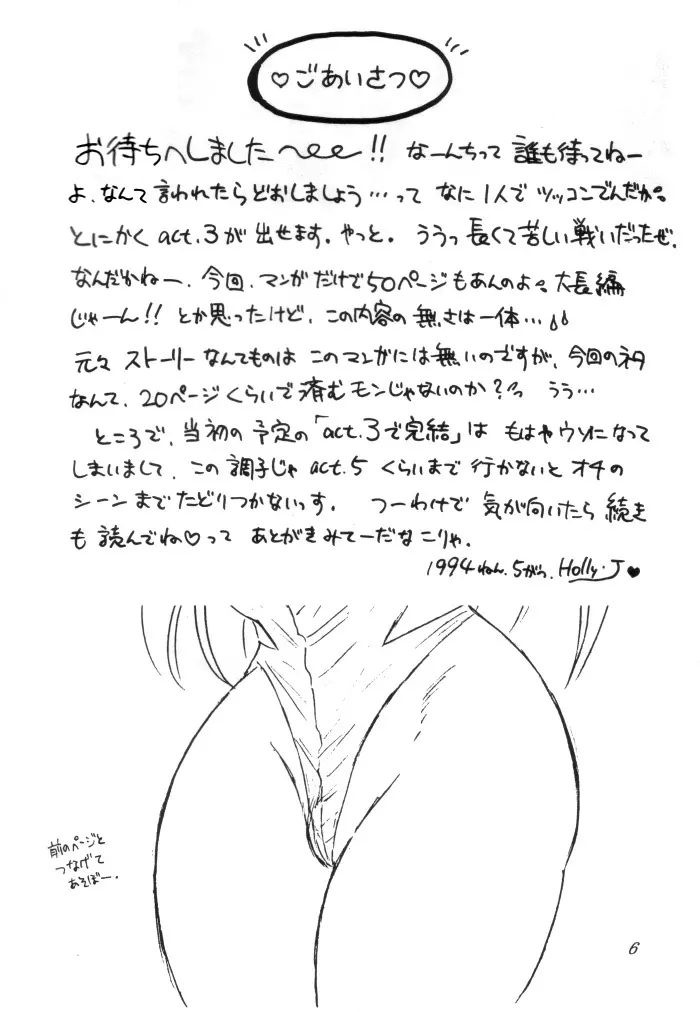 ♡ごあいさつ♡
お待ちへしました〜!! なーんちって 誰も待ってねー
よ、なんて言われたらどおしましょう…って なに1人でツッコンでんだか。
とにかく act.3が出せます。やっと。ううっ長くて苦しい戦いだったぜ。
なんだかねー、今回、マンガだけで50ページもあんのよ。大長編
じゃーん!! とか思ったけど、この内容の無さは一体…
元々ストーリーなんてものはこのマンガには無いのですが、今回のネタ
なんて、20ページくらいで済むモンじゃないのか?っ うう…
ところで、当初の予定の「act.3で完結」は もはやウソになって
しまいまして、この調子じゃ act.5 くらいまで行かないとオチの
シーンまでたどりつかないっす。 つーわけで 気が向いたら続き
も読んでね♡って あとがきみてーだなこりゃ。
1994ねん.5がつ. Holly・J♥
前のページと
つなげて
あそぼー.
6